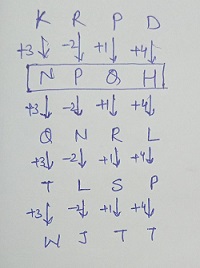 K R P D
+3↓ -2↓ +1↓ +4↓
N P Q H
+3↓ -2↓ +1↓ +4↓
Q N R L
+3↓ -2↓ +1↓ +4↓
T L S P
+3↓ -2↓ +1↓ +4↓
W J T T